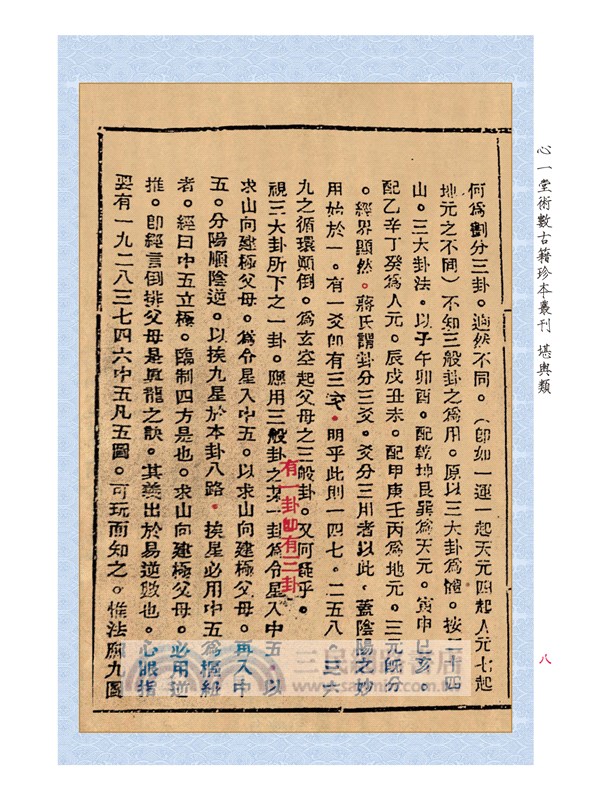 心一堂術數古籍珍本叢刊 堪輿類
何爲劃分三卦。逈然不同。（卽如一運一起天元四起人元七起
地元之不同）不知三般卦之爲用。原以三大卦爲體。按二十四
山。三大卦法。以子午卯酉。配乾坤艮巽爲天元。寅申巳亥。
配乙辛丁癸爲人元。辰戌丑未。配甲庚壬丙爲地元。三元旣分
。經界顯然。蔣氏謂卦分三爻。爻分三用者以此。蓋陰陽之妙
用始於一。有一爻卽有三爻。明乎此則一四七。二五八。三六
九之循環顚倒。爲玄空起父母之三般卦。又何疑乎。
有一卦卽有三卦
視三大卦所下之一卦。應用三般卦之某一卦爲令星入中五。以
求山向建極父母。爲令星入中五。以求山向建極父母。再入中
五。分陽順陰逆。以挨九星於本卦八路。挨星必用中五爲樞紐
者。經曰中五立極。臨制四方是也。求山向建極父母。必用逆
推。卽經言倒排父母是眞龍之訣。其義出於易逆數也。心眼指
要有一九二八三七四六中五凡五圖。可玩而知之。惟法廐九圖
八
三民網路書店